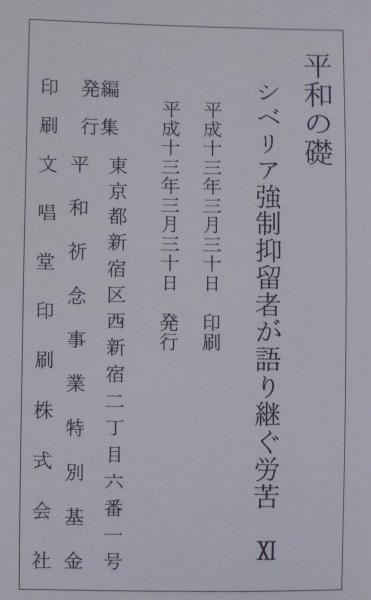 平和の礎
シベリア強制抑留者が語り継ぐ労苦 Ⅺ
平成十三年三月三十日 印刷
平成十三年三月三十日 発行
東京都新宿区西新宿二丁目六番一号
編集
発行 平和祈念事業特別基金
印刷 文唱堂印刷株式会社